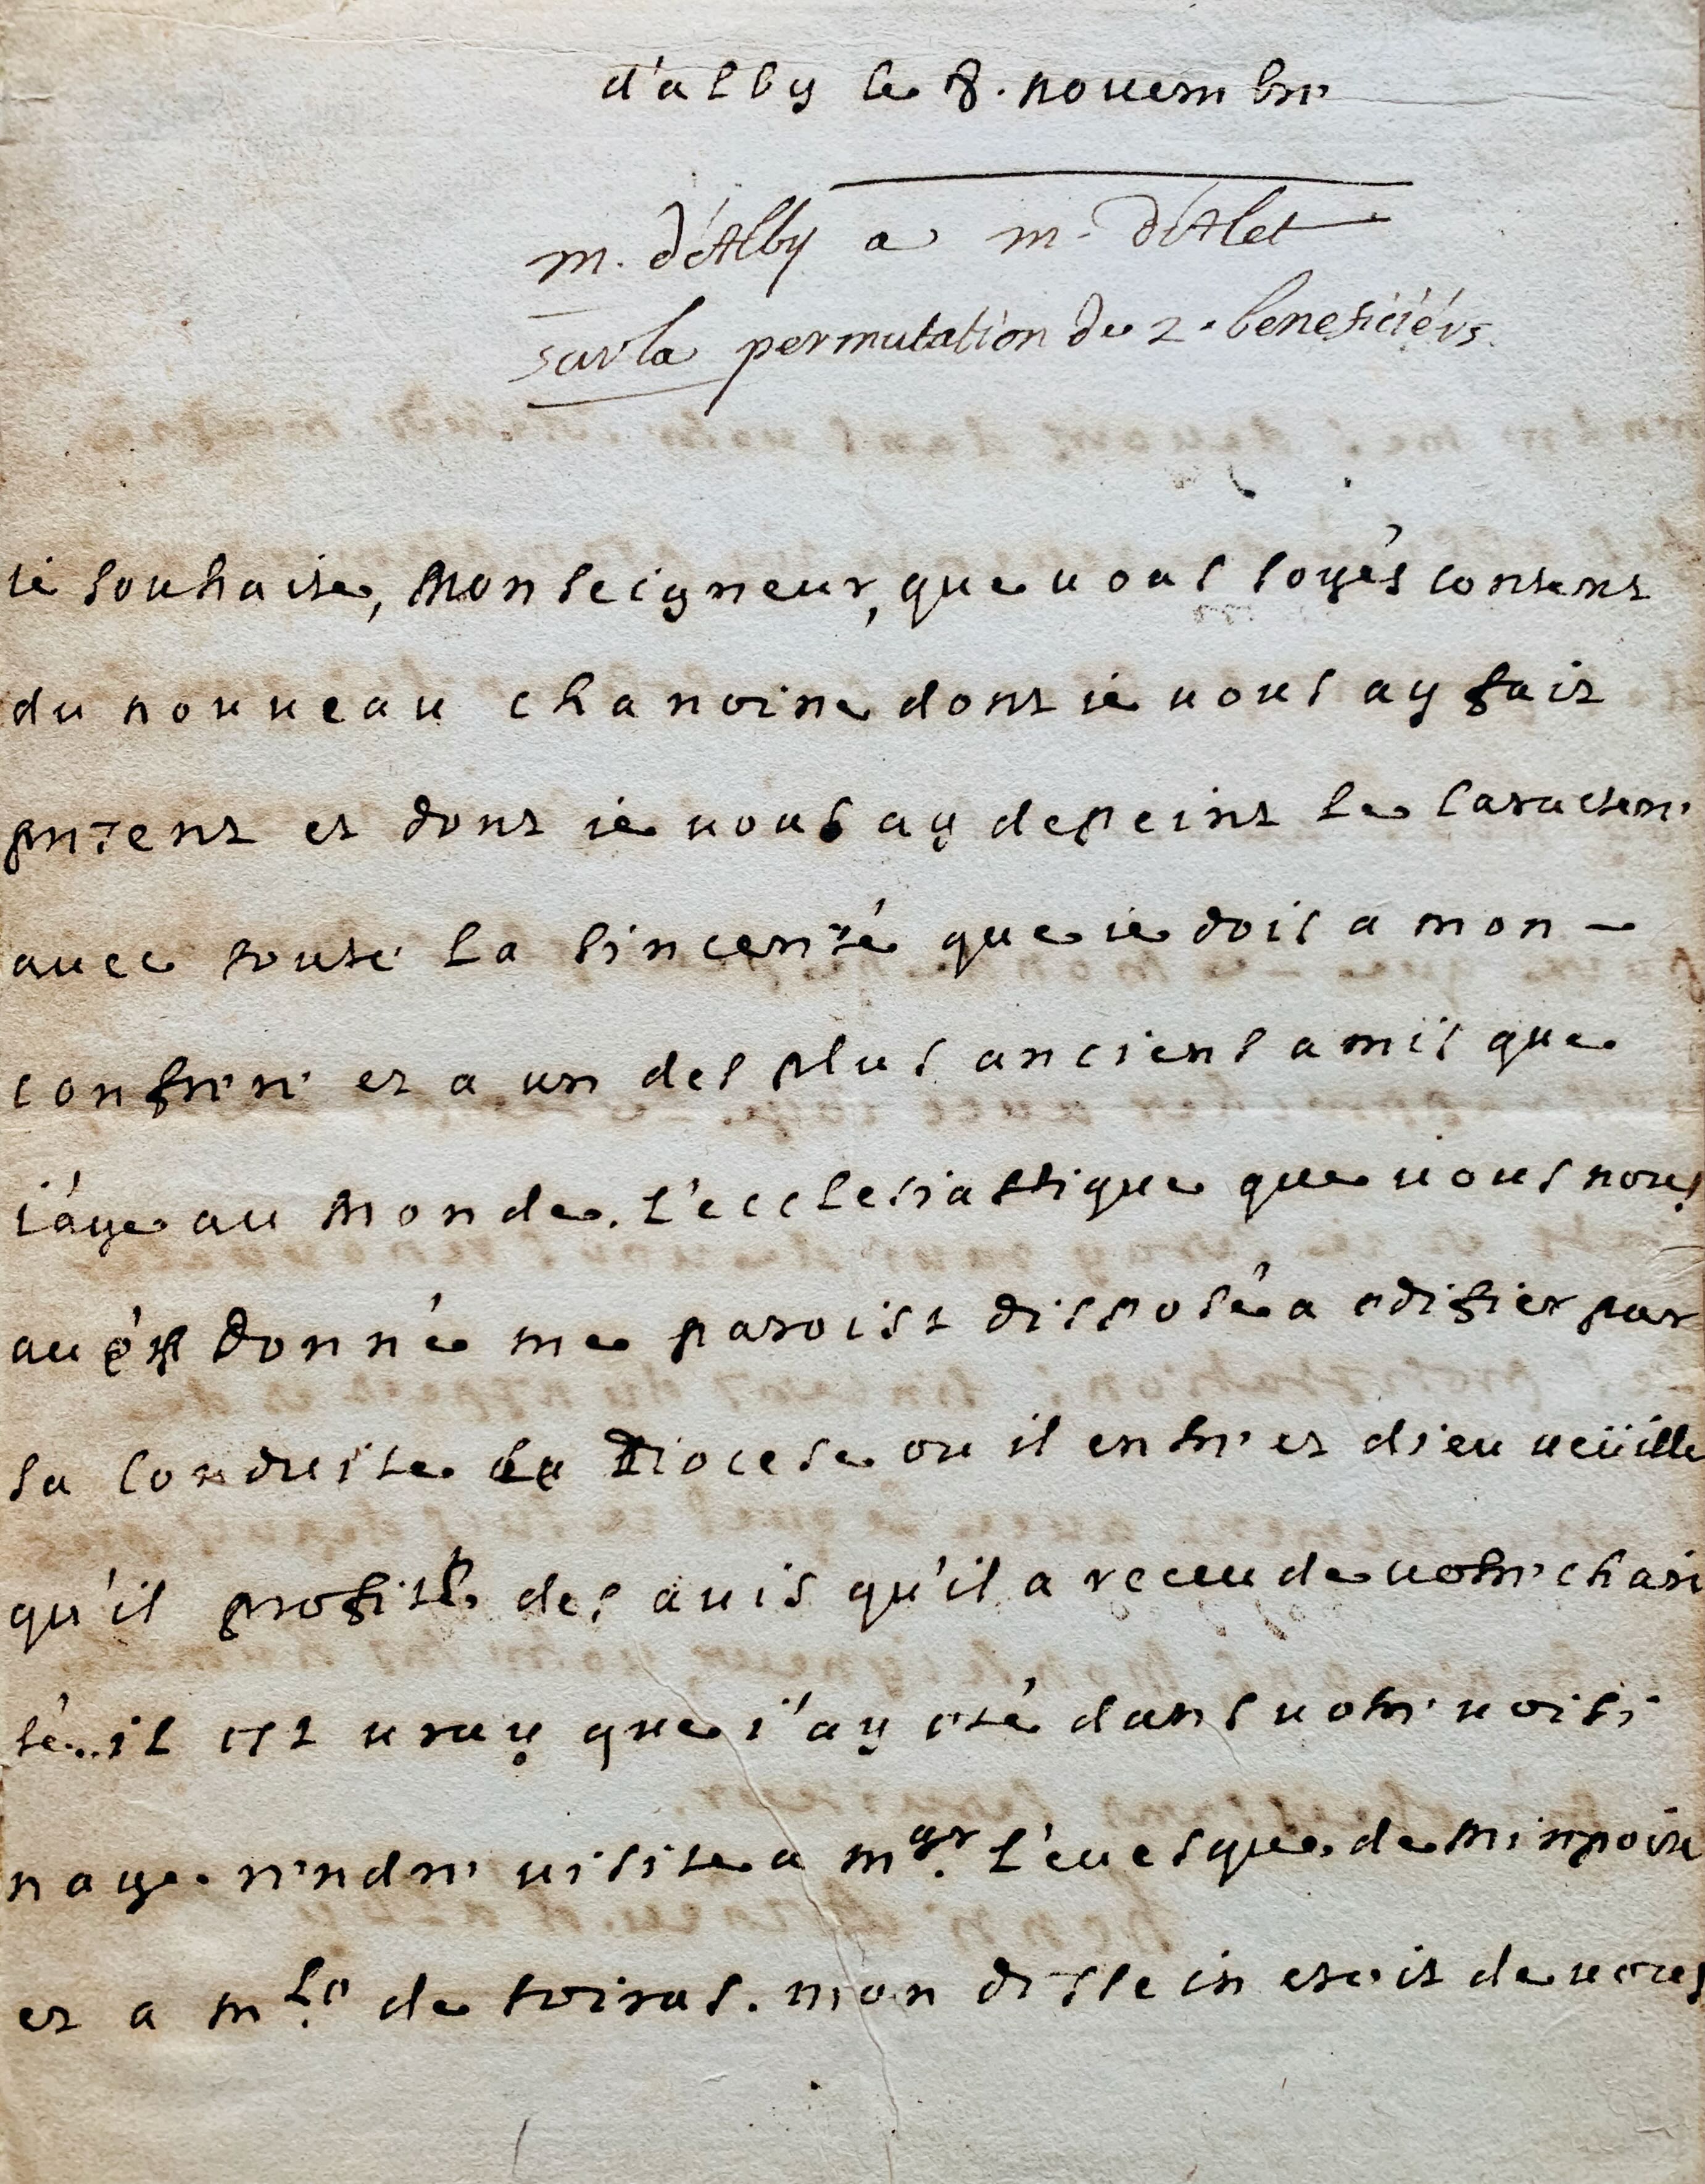 d'alby le 8. nouembre
m. d'Alby a m. d'Alet
sur la permutation de 2. beneficiérs.
ie souhaite, Monseigneur, que uous soyés content
du nouueau chanoine dont ie uous ay fait
present et dont ie uous ay depeint le caractere
auec toute la sincerité que ie dois a mon
confrere et a un des plus anciens amis que
i'aye au Monde. L'ecclesiastique que uous nous
aués donné me paroist disposé a edifier par
sa conduite le Diocese ou il entre et dieu ueüille
qu'il profite des auis qu'il a receu de uotre chari
té.. il est uray que i'ay eté dans uotre uoisi
nage rendre uisite a mgr. L'euesque de Mirepoix
et a de toiras. mon dessein etoit de uous